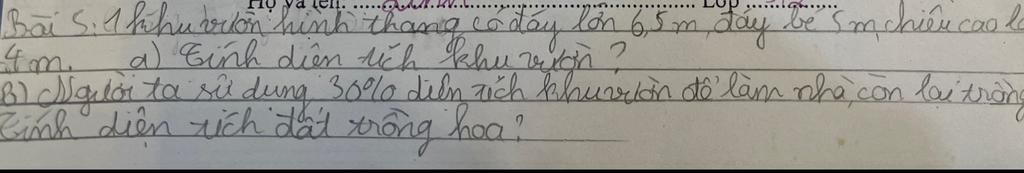 Họ và tên: Lớp
Bài 5: 1 khu vườn hình thang có đáy lớn 6,5 m, đáy bé 5m, chiều cao là
4m. a) Tính diện tích khu vườn?
B) Người ta sử dụng 30% diện tích khu vườn để làm nhà, còn lại trồng
Tính diện tích đất trồng hoa?